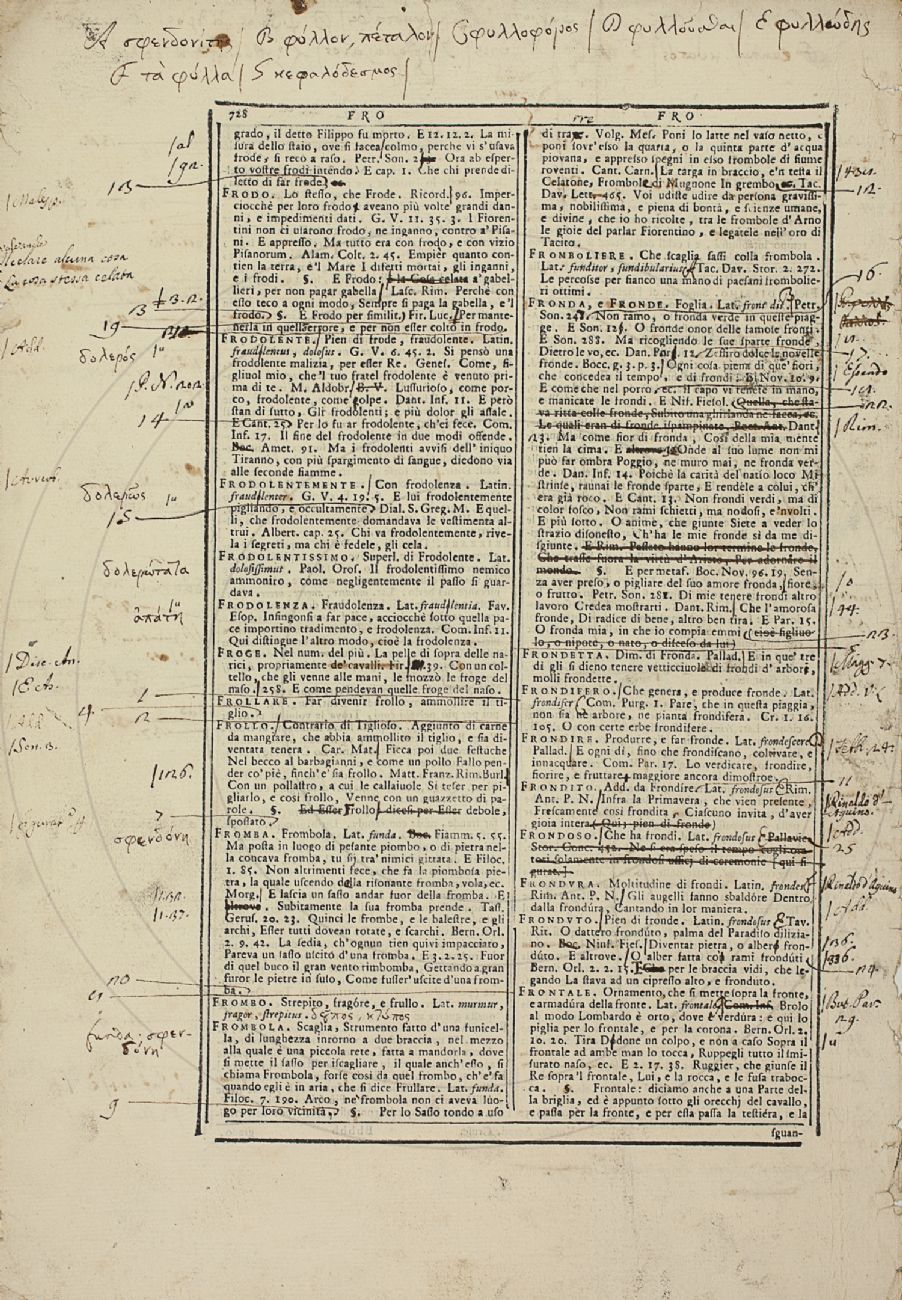 A σφενδονίτης / B φύλλον, πέταλον / C φυλλοφόρος / D φυλλοῦσθαι / E φυλλώδης
F τὰ φύλλα / G κεφαλόδεσμος /
728 FRO
grado, il detto Filippo fu morto. E 12. 12. 2. La mi-
sura dello staio, ove si facea colmo, perche vi s'usava
frode, si recò a raso. Petr. Son. Ora ab esper-
to vostre frodi intendo. E cap. 1. Che chi prende di-
letto di far frode.
FRODO. Lo stesso, che Frode. Ricord. 96. Imper-
tanto chè per loro frodo aveano più volte grandi dan-
ni, e impedimenti dati. G. V. 11. 35. 3. I Fioren-
tini non ci usarono frodo, ne inganno, contro a' Pisa-
ni. E appresso. Ma tutto era con frodo, e con vizio
Pisanorum. Alam. Colt. 2. 45. Empièr quanto con-
tien la terra, e'l Mare I diserti mortai, gli inganni,
e i frodi. §. E Frodo: la Cosa celata a' gabel-
lieri, per non pagar gabella. Lasc. Rim. Perchè con
esso teco a ogni modo, Sempre si paga la gabella, e 'l
frodo. §. E Frodo per similit. Fir. Luc. Per mante-
nerla in quell'errore, e per non esser colto in frodo.
FRODOLENTE. Pien di frode, fraudolente. Latin.
fraudulentus, dolosus. G. V. 6. 45. 2. Si pensò una
frodolente malizia, per esser Re. Genes. Come, fi-
gliuol mio, che 'l tuo fratel frodolente è venuto pri-
ma di te. M. Aldobr. B. V. Lussurioso, come por-
co, frodolente, come golpe. Dant. Inf. 11. E però
stan di sutto, Gli frodolenti; e più dolor gli assale.
E Cant. 25. Per lo fu ar frodolente, ch'ei fece. Com.
Inf. 17. Il fine del frodolente in due modi offende.
Boc. Amet. 91. Ma i frodolenti avvisi dell' iniquo
Tiranno, con più spargimento di sangue, diedono via
alle seconde fiamme.
FRODOLENTEMENTE. Con frodolenza. Latin.
fraudulenter. G. V. 4. 19. 5. E lui frodolentemente
pigliando, e occultamente. Dial. S. Greg. M. E quel-
li, che frodolentemente domandava le vestimenta al-
trui. Albert. cap. 25. Chi va frodolentemente, rive-
la i segreti, ma chi è fedele, gli cela.
FRODOLENTISSIMO. Superl. di Frodolente. Lat.
dolosissimus. Paol. Oros. Il frodolentissimo nemico
ammoniro, come negligentemente il passo si guar-
dava.
FRODOLENZA. Fraudolenza. Lat. fraudulentia. Fav.
Esop. Infingonsi a far pace, acciocchè sotto quella pa-
ce importino tradimento, e frodolenza. Com. Inf. 11.
Qui distingue l'altro modo, cioè la frodolenza.
FROGE. Nel num. del più. La pelle di sopra delle na-
rici, propriamente de' cavalli. Fir. 39. Con un col-
tello, che gli venne alle mani, le mozzò le froge del
naso. 258. E come pendevan quelle froge del naso.
FROLLARE. Far divenir frollo, ammollire il ti-
glio.
FROLLO. Contrario di Tiglioso. Aggiunto di carne
da mangiare, che abbia ammollito il tiglio, e sia di-
ventata tenera. Car. Mat. Ficca poi due festuche
Nel becco al barbagianni, e come un pollo Fallo pen-
der co' piè, finch'e' sia frollo. Matt. Franz. Rim. Burl.
Con un pollastro, a cui le callaiuole Si teser per pi-
gliarlo, e così frollo, Venne con un guazzetto di pa-
role. §. Ed Esser Frollo, dicesi per Esser debole,
spossato.
FROMBA. Frombola. Lat. funda. Boc. Fiamm. 5. 55.
Ma posta in luogo di pesante piombo, o di pietra nel-
la concava fromba, tu sij tra' nimici gittata. E Filoc.
1. 85. Non altrimenti fece, che fa la piombosa pie-
tra, la quale uscendo della risonante fromba, vola, ec.
Morg. E lascia un sasso andar fuor della fromba. E
altrove. Subitamente la sua fromba prende. Tass.
Gerus. 20. 23. Quinci le frombe, e le balestre, e gli
archi, Esser tutti dovean rotate, e scarchi. Bern. Orl.
2. 9. 42. La sedia, ch'ognun tien quivi impacciato,
Pareva un sasso uscito d'una fromba. E 3. 2. 25. Fuor
di quel buco il gran vento rimbomba, Gettando a gran
furor le pietre in suso, Come fusser' uscite d'una from-
ba.
FROMBO. Strepito, fragóre, e frullo. Lat. murmur,
fragor, strepitus. δοῦπος, κτύπος
FROMBOLA. Scaglia, Strumento fatto d'una funicel-
la, di lunghezza intorno a due braccia, nel mezzo
alla quale è una piccola rete, fatta a mandorla, dove
si mette il sasso per iscagliare, il quale anch'esso, si
chiama Frombola, forse così da quel frombo, ch'e' fa
quando egli è in aria, che si dice Frullare. Lat. funda.
Filoc. 7. 190. Arco, ne frombola non ci aveva luo-
go per loro vicinità. §. Per lo Sasso tondo a uso
FRO
di trarre. Volg. Mes. Poni lo latte nel vaso netto, e
poni sovr'esso la quarta, o la quinta parte d' acqua
piovana, e appresso spegni in esso frombole di fiume
roventi. Cant. Carn. La targa in braccio, e'n testa il
Celatone, Frombole di Mugnone In grembo, ec. Tac.
Dav. Lett. 465. Voi udiste udire da persona gravissi-
ma, nobilissima, e piena di bontà, e scienze umane,
e divine, che io ho ricolte, tra le frombole d'Arno
le gioie del parlar Fiorentino, e legatele nell' oro di
Tacito.
FROMBOLIERE. Che scaglia sassi colla frombola.
Lat. funditor, fundibularius. Tac. Dav. Stor. 2. 272.
Le percosse per fianco una mano di paesani frombolie-
ri ottimi.
FRONDA, e FRONDE. Foglia. Lat. frons dis. Petr.
Son. 248. Non ramo, o fronda verde in queste piag-
ge. E Son. 128. O fronde onor delle famose fronti.
E Son. 288. Ma ricogliendo le sue sparte fronde,
Dietro le vo, ec. Dan. Par. 12. Zessiro dolce le novelle
fronde. Bocc. g. 3. p. 3. Ogni cosa piena di que' fiori,
che concedea il tempo, e di frondi. E Nov. 10. 9.
E come che nel porro, ec. il capo vi tenete in mano,
e manicate le frondi. E Nif. Fiesol. Quella, che sta-
va ritta colle fronde, Subito una ghirlanda ne faceа, ec.
Le quali eran di fronde ispampinate. Poet. Ant. Dant.
13. Ma come fior di fronda, Così della mia mente
tien la cima. E altrove. Onde al suo lume non mi
può far ombra Poggio, ne muro mai, ne fronda ver-
de. Dan. Inf. 14. Poichè la carità del natìo loco Mi
strinse, raunai le fronde sparte, E rendèle a colui, ch'
era già roco. E Cant. 13. Non frondi verdi, ma di
color fosco, Non rami schietti, ma nodosi, e'nvolti.
E più sotto. O anime, che giunte Siete a veder lo
strazio disonesto, Ch'ha le mie frondi sì da me di-
sgiunte. E Rim. Pestato hanno lor termine le fronde,
Che trasse fuora la virtù d'Ariete, Per adornare il
mondo. §. E per metaf. Boc. Nov. 96. 19. Sen-
za aver preso, o pigliare del suo amore fronda, fiore,
o frutto. Petr. Son. 281. Di mie tenere frondi altro
lavoro Credea mostrarti. Dant. Rim. Che l'amorosa
fronde, Di radice di bene, altro ben tira. E Par. 15.
O fronda mia, in che io compiaⁱemmi (cioè figliuo-
lo, o nipote, o nato, o disceso da lui)
FRONDETTA. Dim. di Fronda. Pallad. E in que' tre
dì gli si dieno tenere vetticciuole di frondi d' arbori,
molli frondette.
FRONDIFERO. Che genera, e produce fronde. Lat.
frondifer. Com. Purg. 1. Pare, che in questa piaggia,
non sia nè arbore, ne pianta frondifera. Cr. 1. 16.
105. O con certe erbe frondifere.
FRONDIRE. Produrre, e far fronde. Lat. frondescere.
Pallad. E ogni dì, fino che frondiscano, coltivare, e
innacquare. Com. Par. 17. Lo verdicare, frondire,
fiorire, e fruttare maggiore ancora dimostroe.
FRONDITO. Add. da Frondire. Lat. frondosus. Rim.
Ant. P. N. Infra la Primavera, che vien presente,
Frescamente così frondita, Ciascuno invita, d'aver
gioia intera. Qui; pien di fronde.
FRONDOSO. Che ha frondi. Lat. frondosus. Pallavic.
Stor. Conc. 492. Ne si era speso il tempo cogli ora-
tori solamente in frondosi ufficj di ceremonie [qui fi-
gurat.]
FRONDURA. Moltitudine di frondi. Latin. frondes.
Rim. Ant. P. N. Gli augelli fanno sbaldóre Dentro
dalla frondúra, Cantando in lor maniera.
FRONDUTO. Pien di fronde. Latin. frondosus. Tav.
Rit. O dattero fronduto, palma del Paradiso dilizia-
no. Boc. Ninf. Fies. Diventar pietra, o albero fron-
dúto. E altrove. O alber fatta co' rami fronduti.
Bern. Orl. 2. 2. 15. E Che per le braccia vidi, che le-
gando La stava ad un cipresso alto, e fronduto.
FRONTALE. Ornamento, che si mette sopra la fronte,
e armadúra della fronte. Lat. frontale. Com. Inf. Brolo
al modo Lombardo è orto, dove è verdúra: e qui lo
piglia per lo frontale, e per la corona. Bern. Orl. 2.
10. 20. Tira Dodone un colpo, e non a caso Sopra il
frontale ad ambe man lo tocca, Ruppegli tutto il smi-
surato naso, ec. E 2. 17. 38. Ruggier, che giunse il
Re sopra 'l frontale, Lui, e la rocca, e le fusa traboc-
ca. §. Frontale: diciamo anche a una Parte del-
la briglia, ed è appunto sotto gli orecchj del cavallo,
e passa per la fronte, e per essa passa la testiéra, e la
sguan-
13
19
δολερός
14
δολερῶς
15
δολερώτατα
ἀπάτη
1
2
4
7
σφενδόνη
funda, σφεν-
δόνη
9
16
11
Rinaldo d'
Aquino
25
Rinaldo d'Aquino